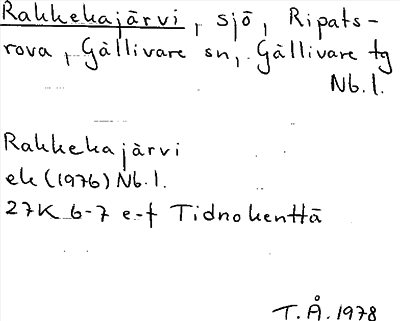 Rakkekajärvi, sjö, Ripats-
rova, Gällivare sn, Gällivare tg
Nb.l.
Rakkekajärvi
ek (1976) Nb.l.
27K 6-7 e-f Tidnokenttä
T.Å. 1978